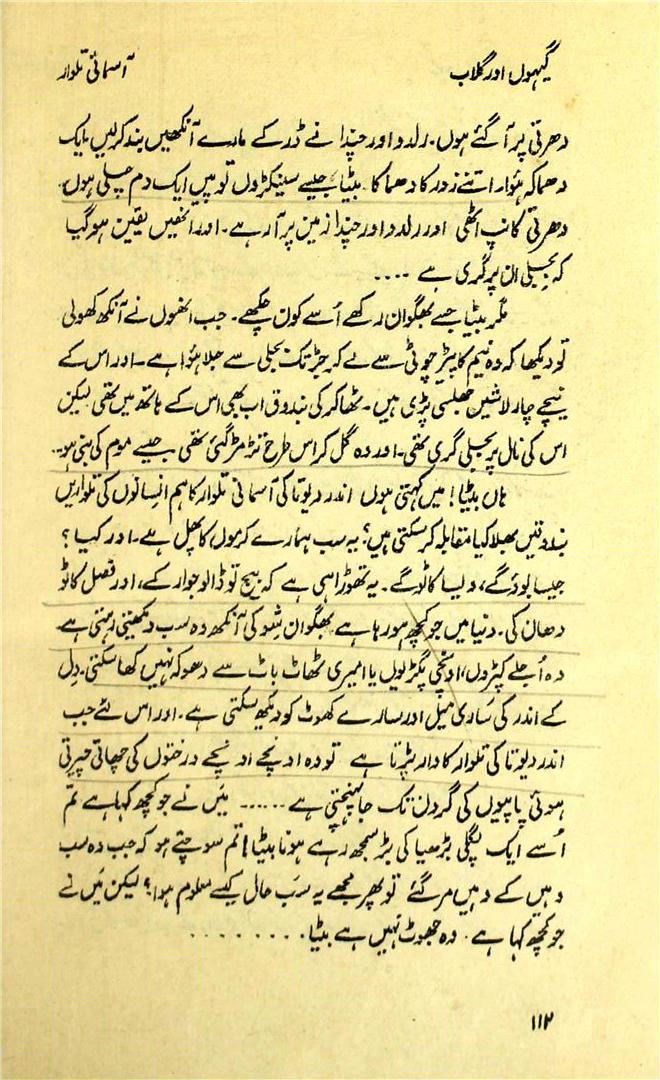 گیہوں اور گلاب
آسمانی تلوار
دھرتی پر آ گئے ہوں۔ رلدو اور چندا نے ڈر کے مارے آنکھیں بند کر لیں۔ ایک
دھماکہ ہوا۔ اتنے زور کا دھماکا۔ بیٹا، جیسے سینکڑوں توپیں ایک دم چلی ہوں۔
دھرتی کانپ اٹھی اور رلدو اور چندا زمین پر آ رہے۔ اور انھیں یقین ہو گیا
کہ بجلی ان پر گری ہے ....
مگر بیٹا جسے بھگوان رکھے اُسے کون چکھے۔ جب انھوں نے آنکھ کھولی
تو دیکھا کہ وہ نیم کا پیڑ چوٹی سے لے کر جڑ تک بجلی سے جلا ہوا ہے۔ اور اس کے
نیچے چار لاشیں جھلسی پڑی ہیں۔ ٹھاکر کی بندوق اب بھی اس کے ہاتھ میں تھی لیکن
اس کی نال پر بجلی گری تھی۔ اور وہ گل کر اس طرح تڑ مڑ گئی تھی جیسے موم کی بنی ہو۔
ہاں بیٹا! میں کہتی ہوں اندر دیوتا کی آسمانی تلوار کا ہم انسانوں کی تلواریں
بندوقیں بھلا کیا مقابلہ کر سکتی ہیں؟ یہ سب ہمارے کرموں کا پھل ہے۔ اور کیا؟
جیسا بوؤ گے، ویسا کاٹو گے۔ یہ تھوڑا ہی ہے کہ بیج تو ڈالو جوار کے، اور فصل کاٹو
دھان کی۔ دنیا میں جو کچھ ہو رہا ہے بھگوان شو کی آنکھ وہ سب دیکھتی رہتی ہے
وہ اُجلے کپڑوں، اونچی پگڑیوں یا امیری ٹھاٹ باٹ سے دھوکہ نہیں کھا سکتی۔ دل
کے اندر کی ساری میل اور سارے کھوٹ کو دیکھ سکتی ہے۔ اور اس لئے جب
اندر دیوتا کی تلوار کا وار پڑتا ہے تو وہ اونچے اونچے درختوں کی چھاتی چیرتی
ہوئی پاپیوں کی گردن تک جا پہنچتی ہے ...... میں نے جو کچھ کہا ہے تم
اُسے ایک پگلی بڑھیا کی بڑ سمجھ رہے ہو نا بیٹا! تم سوچتے ہو کہ جب وہ سب
وہیں کے وہیں مر گئے تو پھر مجھے یہ سب حال کیسے معلوم ہوا؟ لیکن میں نے
جو کچھ کہا ہے۔ وہ جھوٹ نہیں ہے بیٹا۔ ........
۱۱۲